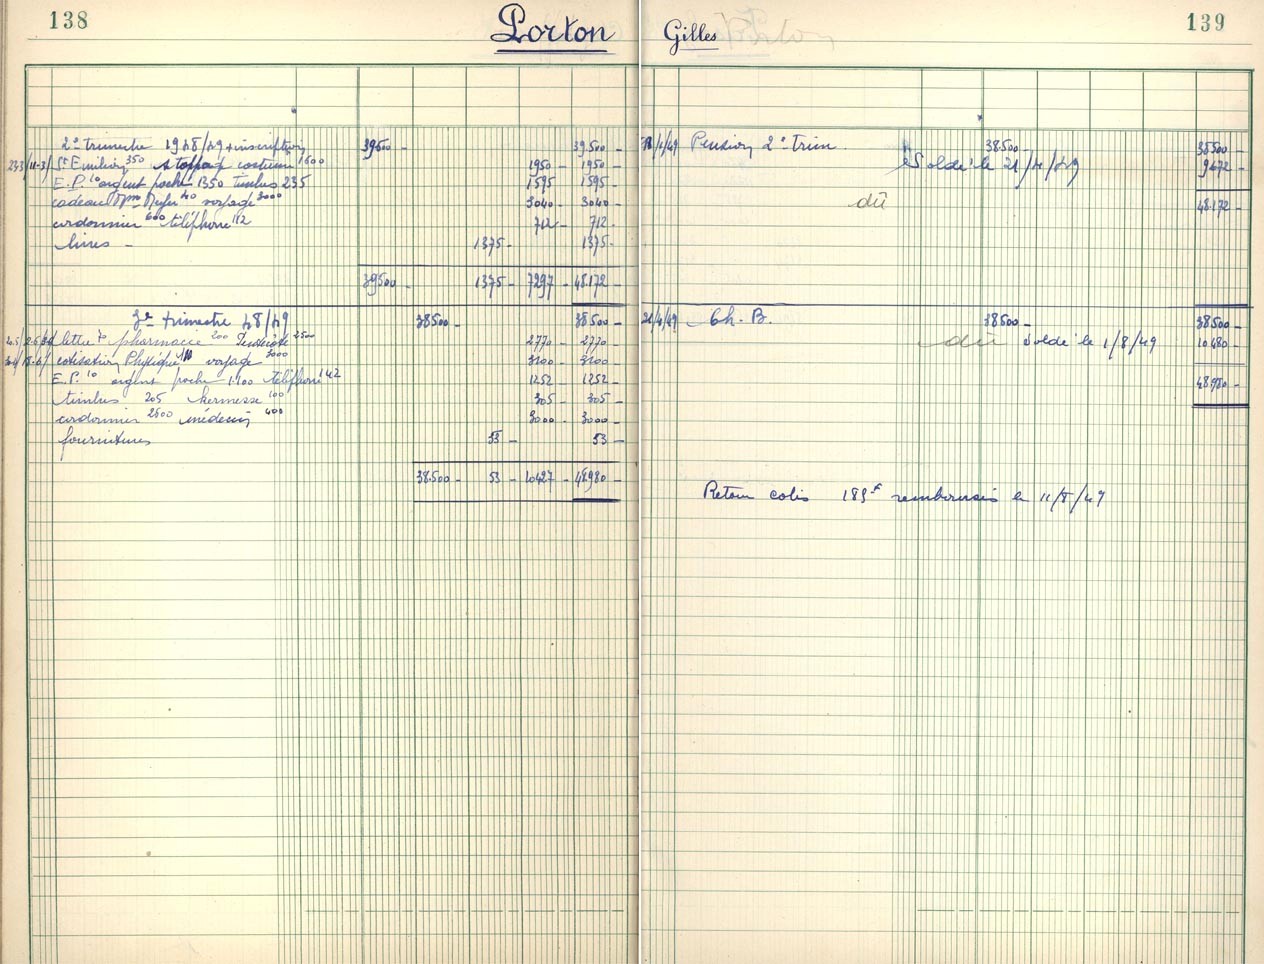 138
Porton
Gilles
139
2e trimestre 1948/49 + inscription 39500 - 39.500 -
St Emilion 350 costume 1600 1950 - 1950 -
E.P. 10 argent poche 1350 timbres 235 1595 - 1595 -
cadeau 40 voyage 3000 3040 - 3040 -
cordonnier 600 téléphone 112 712 - 712 -
livres - 1375 - 1375 -
39500 - 1375 - 7297 - 48.172 -
/49 Pension 2e Trim. 38.500 - 38500 -
Soldé le 21/4/49 9672 -
dû 48.172 -
3e trimestre 48/49 38500 - 38500 -
lettre pharmacie 200 2500 2770 - 2770 -
cotisation Physique voyage 3000 3100 - 3100 -
E.P. 10 argent poche 1.100 téléphone 142 1252 - 1252 -
timbres 205 kermesse 100 305 - 305 -
cordonnier 2600 médecin 400 3000 - 3000 -
fournitures 53 - 53 -
38.500 - 53 - 10427 - 48.980 -
21/4/49 Ch. B. 38500 - 38500 -
dû soldé le 1/8/49 10480 -
48.980 -
Retour colis 189f remboursés le 11/8/49